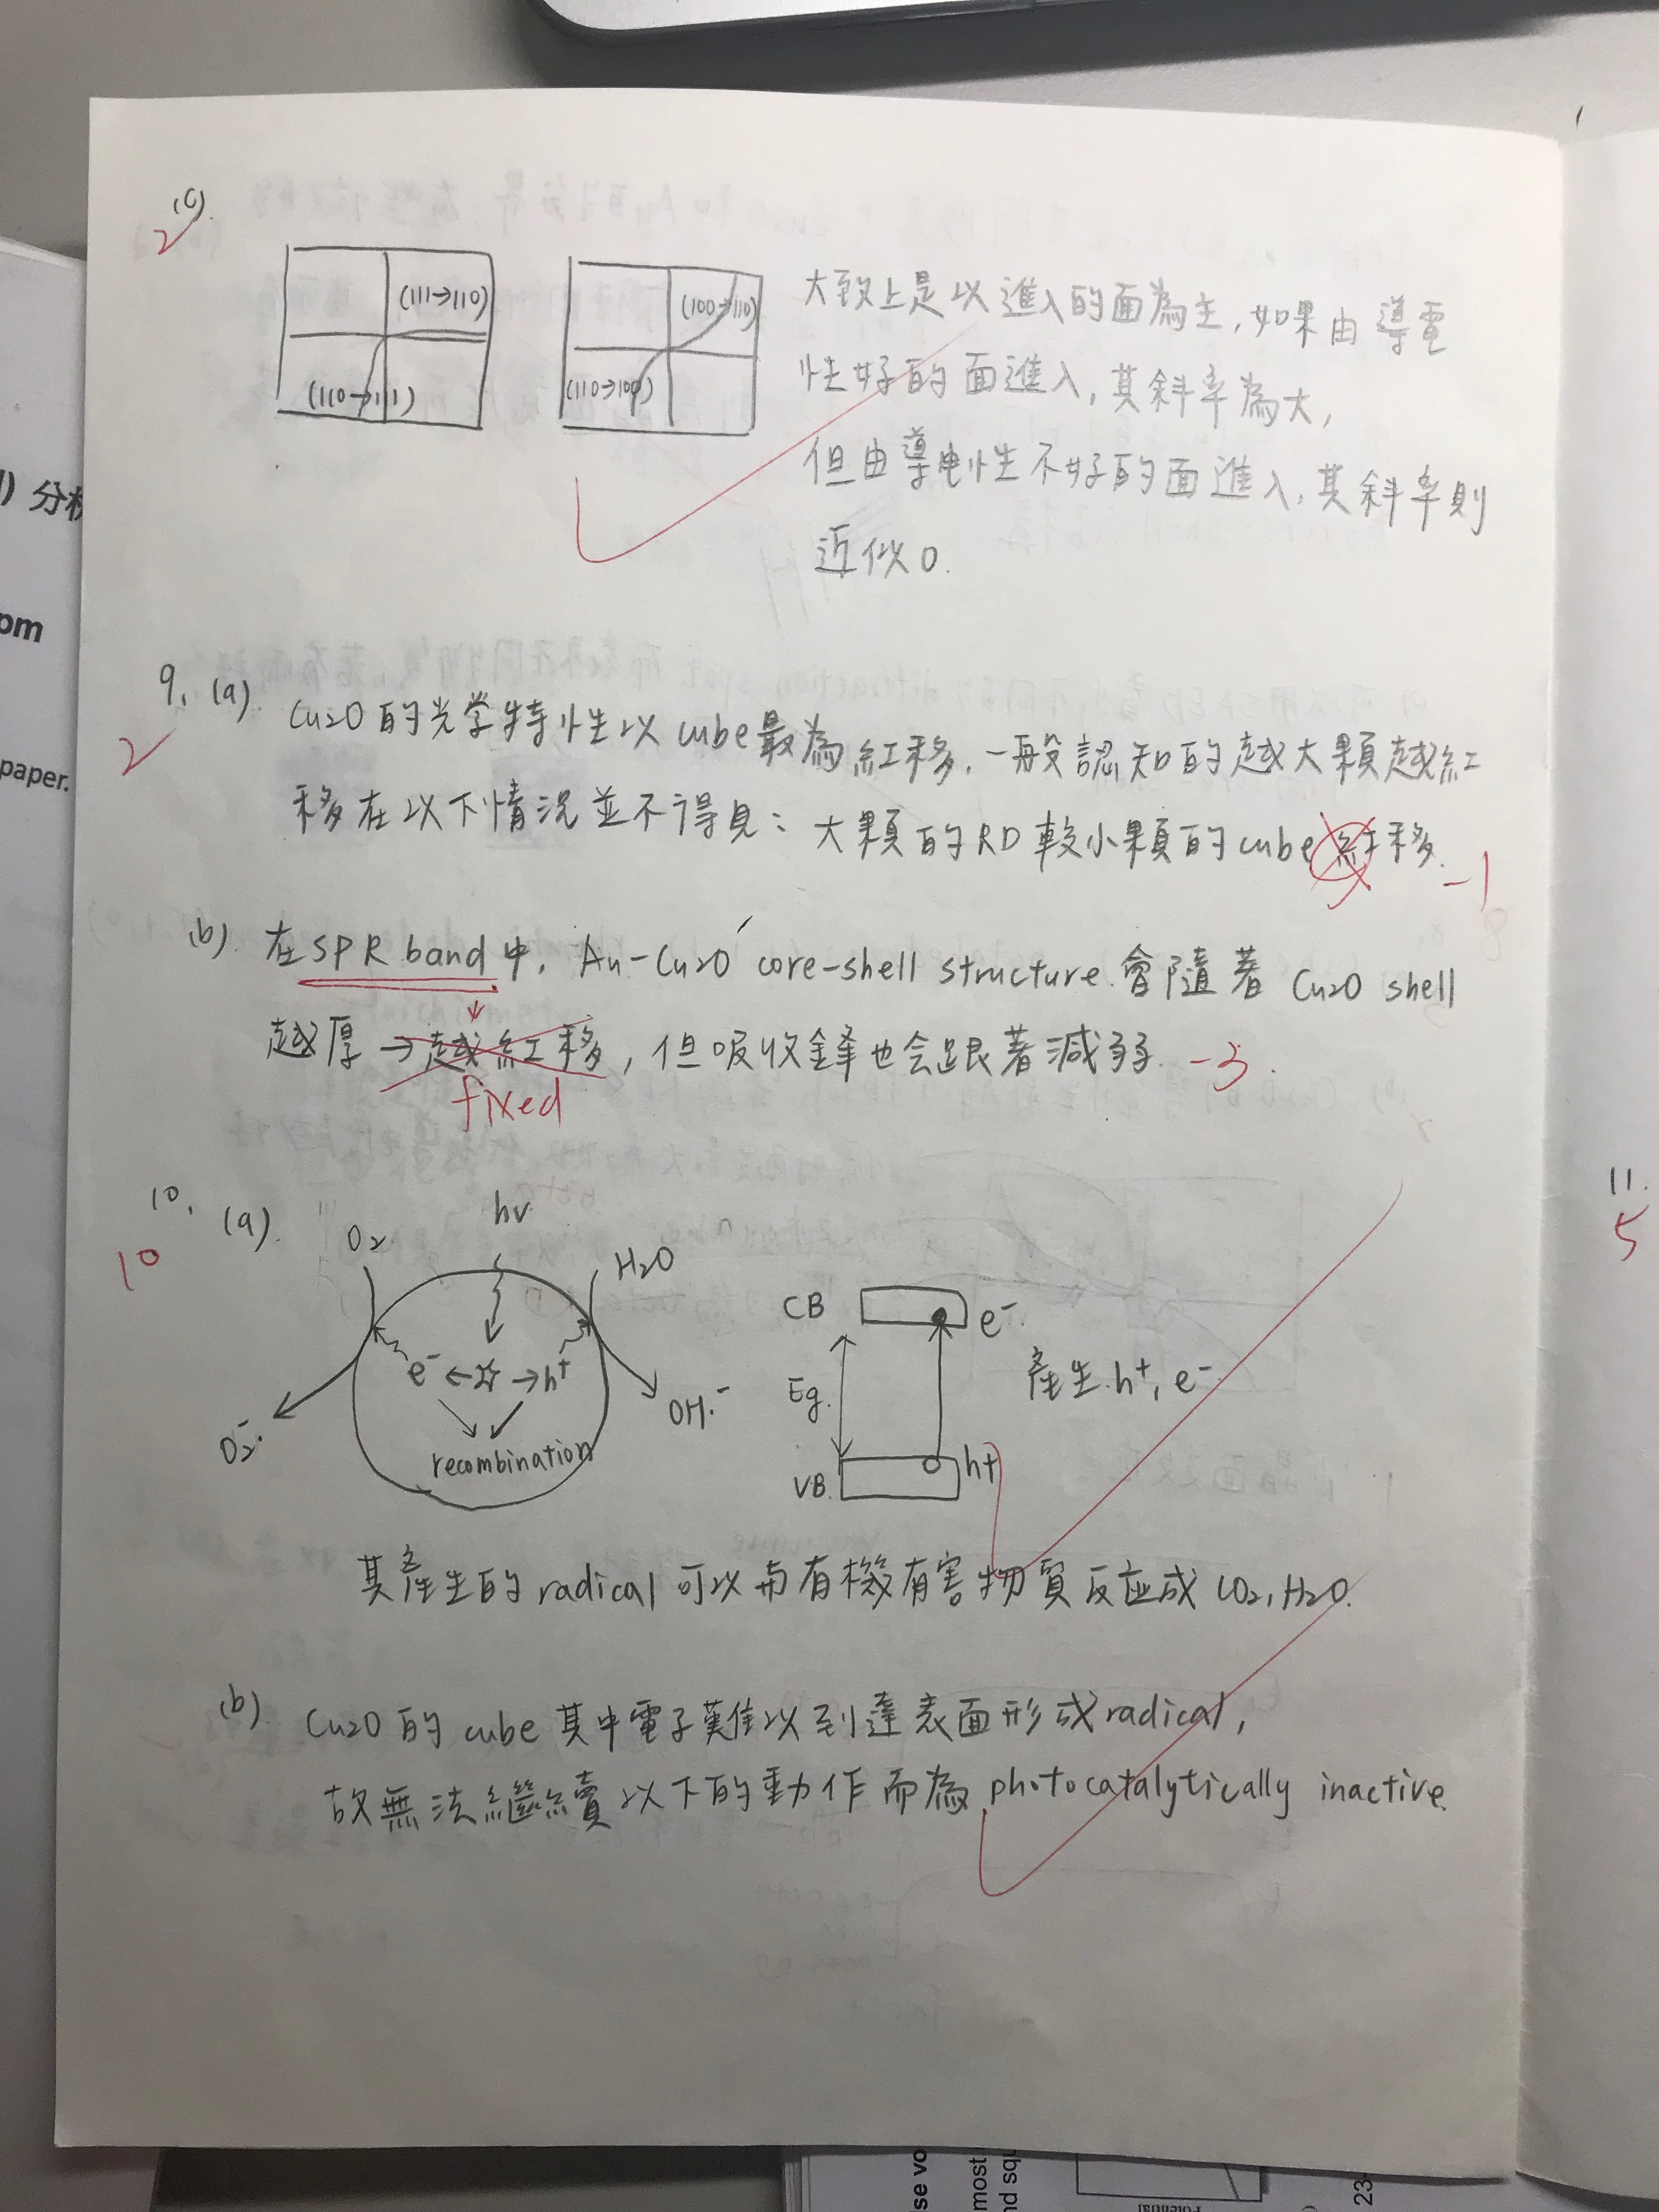 (c).
2
(111→110)
(110→111)
(100→110)
(110→100)
大致上是以進入的面為主,如果由導電
性好的面進入,其斜率為大,
但由導电性不好的面進入,其斜率則
近似0.
9. (a).
2
Cu2O的光学特性以cube最為紅移.一般認知的越大顆越紅
移在以下情況並不得見:大顆的RD較小顆的cube紅移.
-1
(b). 在SPR band中, Au-Cu2O core-shell structure.會隨著 Cu2O shell
越厚→越紅移,但吸收鋒也会跟著減弱. -3.
fixed
10. (a).
10
O2
hν
H2O
e- ← → h+
recombination
O2-.
OH.-
CB
e-
Eg.
VB.
h+
產生.h+, e-.
其產生的radical可以与有機有害物質反应成CO2,H2O.
(b). Cu2O的cube其中電子難以到達表面形成radical,
故無法繼續以下的動作而為photocatalytically inactive.
11.
5
分析
pm
paper.
se vo
most
nd squ
Potential
23-